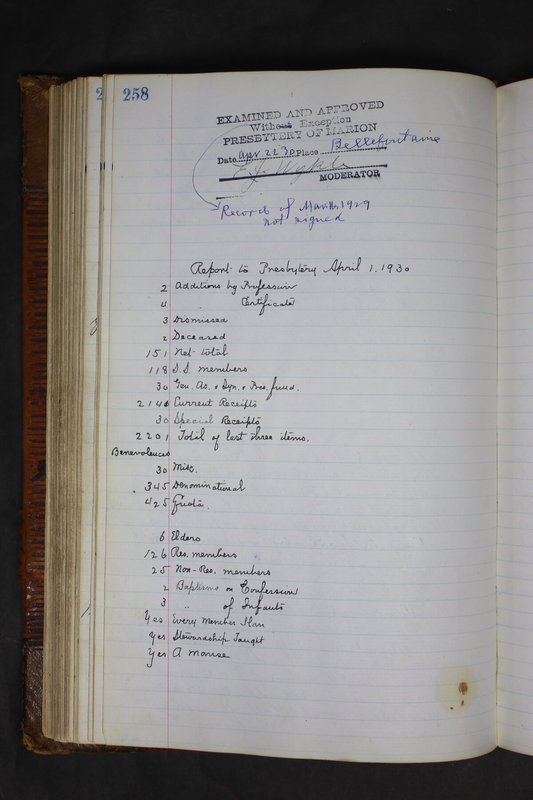 2
258
EXAMINED AND APPROVED
Without Exception
PRESBYTERY OF MARION
Date Apr. 22 30 Place Bellefontaine
MODERATOR
Records of Mar. 1929
not signed
Report to Presbytery April 1, 1930
2 Additions by Profession
4 " Certificate
3 Dismissed
2 Deceased
151 Net total
118 S.S. members
30 Gen. As. & Syn. & Pres. fund.
2141 Current Receipts
30 Special Receipts
2201 Total of last three items.
Benevolences
30 Misc.
345 Denominational
425 Quota.
6 Elders
126 Res. members
25 Non-Res. members
2 Baptisms on Confession
3 " of Infants
Yes Every Member Plan
Yes Stewardship Taught
Yes A manse